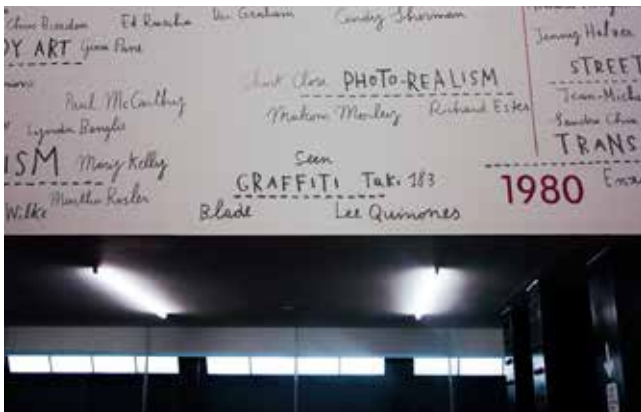 Chris Burden Ed Ruscha Dan Graham Cindy Sherman
DY ART Gina Pane
Jenny Holzer
Chuck Close PHOTO-REALISM
STREET
Paul McCarthy
Malcom Morley Richard Estes
Jean-Mich
Lynda Benglis
Sandro Chia
TRANS
ISM Mary Kelly
Seen
GRAFFITI Taki 183
1980 Enzo
Wilke Martha Rosler
Blade Lee Quinones